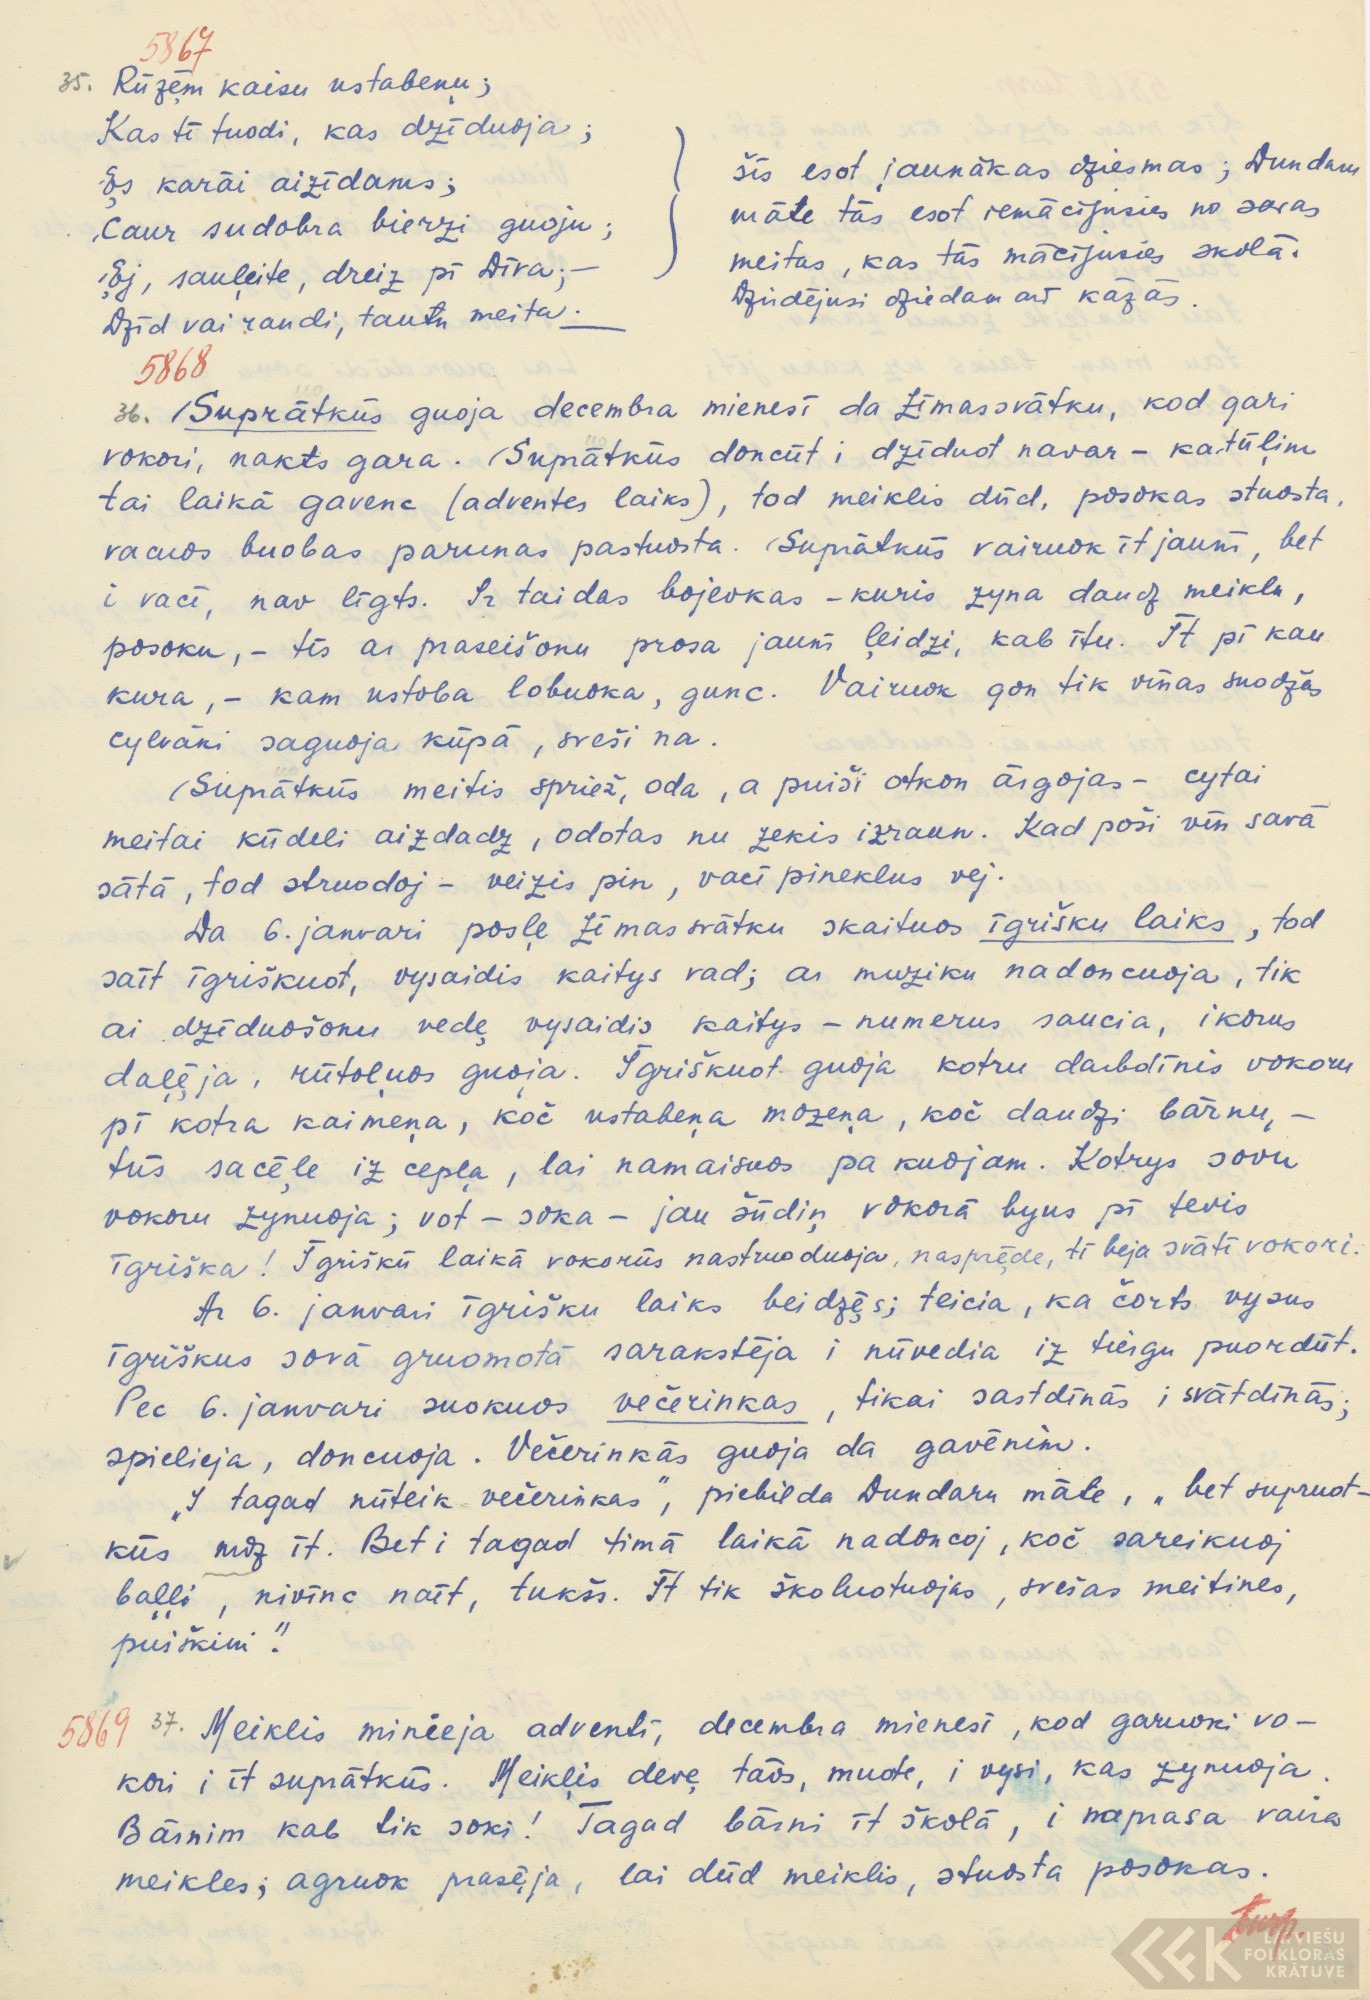 5867
35. Rūzem̧ kaisu ustabeņu;
Kas tī tuodi, kas dzīduoja;
Es karāi aizīdams;
Caur sudobra bierzi guoju;
Ej, sauļeite, dreiz pī Dīva; —
Dzīd vai raudi, tautu meita. —
šīs esot jaunākas dziesmas; Dundaru
māte tās esot iemācījusies no savas
meitas, kas tās mācījusies skolā.
Dzirdējusi dziedam arī kāzās.
5868
36. Suprātkūs guoja decembra mienesī da Zīmassvātku, kod gari
vokori, nakts gara. Suprātkūs doncūt i dzīduot navar – ka tūļim
tai laikā gavenc (adventes laiks), tod meiklis dūd, posokas stuosta,
vacuos buobas parunas pastuosta. Suprātkūs vairuok īt jaunī, bet
i vacī, nav līgts. Ir taidas bojevkas – kuris zyna daudz meiklu,
posoku, – tīs ar praseišonu prosa jaunī ļeidzi, kab ītu. Īt pī kau
kura, – kam ustoba lobuoka, gunc. Vairuok gon tik vīnas suodžas
cylvāki saguoja kūpā, sveši na.
Suprātkūs meitis spriež, oda, a puiši otkon ārgojas – cytai
meitai kūdeli aizdadz, odotas nu zekis izraun. Kad poši vīn savā
sātā, tod struodoj – veizis pin, vacī pineklus vej.
Da 6. janvari posļe Zīmassvātku skaituos īgrišku laiks, tod
saīt īgriškuot, vysaidis kaitys vad; ar muziku nadoncuoja, tik
ai dzīduošonu vedę vysaidis kaitys – numerus saucia, ikorus
daļęja, rūtoļuos guoja. Īgriškuot guoja kotru darbdīnis vokoru
pī kotra kaimeņa, koč ustabeņa mozeņa, koč daudzi bārnu, –
tūs sacēļe iz cepļa, lai namaisuos pa kuojam. Kotrys sovu
vokoru zynuoja; vot – soka – jau šūdiņ vokorā byus pī tevis
īgriška! Īgrišku laikā vokorūs nastruoduoja, nasprēde, tī beja svātī vokori.
Ar 6. janvari īgrišku laiks beidzēs; teicia, ka čorts vysus
īgriškus sovā gruomotā sarakstēja i nūvedia iz tiergu puordūt.
Pec 6. janvari suokuos večerinkas, tikai sastdīnās i svātdīnās;
spielieja, doncuoja. Večerinkās guoja da gavēnim.
„I tagad nūteik večerinkas", piebilda Dundaru māte, „bet supruot-
kūs moz īt. Bet i tagad timā laikā nadoncoj, koč sareikuoj
baļļi, nivīnc naīt, tukšs. Īt tik školuotuojas, svešas meitines,
puiškini".
5869 37. Meiklis minēja adventī, decembra mienesī, kod garuoki vo-
kori i īt suprātkūs. Meikļis devę tāvs, muote, i vysi, kas zynuoja.
Bārnim kab tik soki! Tagad bārni īt školā, i naprasa vaira
meikles; agruok prasęja, lai dūd meiklis, stuosta posokas.
turp.
LATVIEŠU
FOLKLORAS
KRĀTUVE